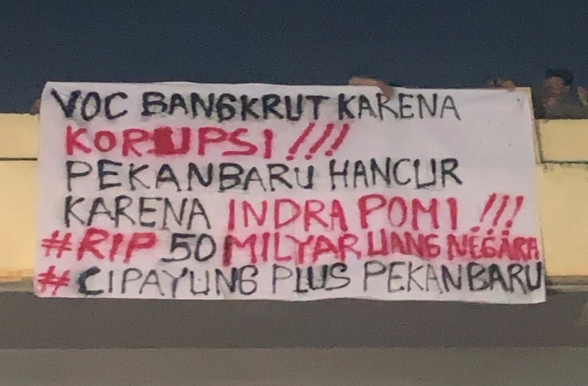 VOC BANGKRUT KARENA
KORUPSI !!!
PEKANBARU HANCUR
KARENA INDRA POMI !!!
#RIP 50 MILYAR UANG NEGARA
#CIPAYUNG PLUS PEKANBARU